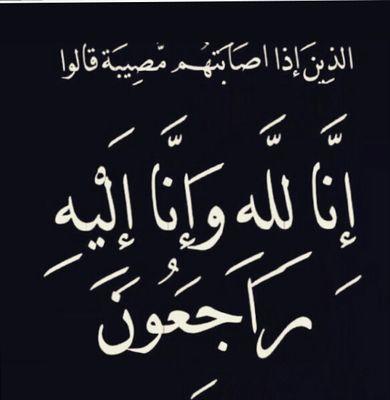 الذِينَ إذا اصَابَتهُم مّصِيبَة قالوا
إِنَّا لله وَإِنَّا إِلَيْهِ
رَاجَعُونَ